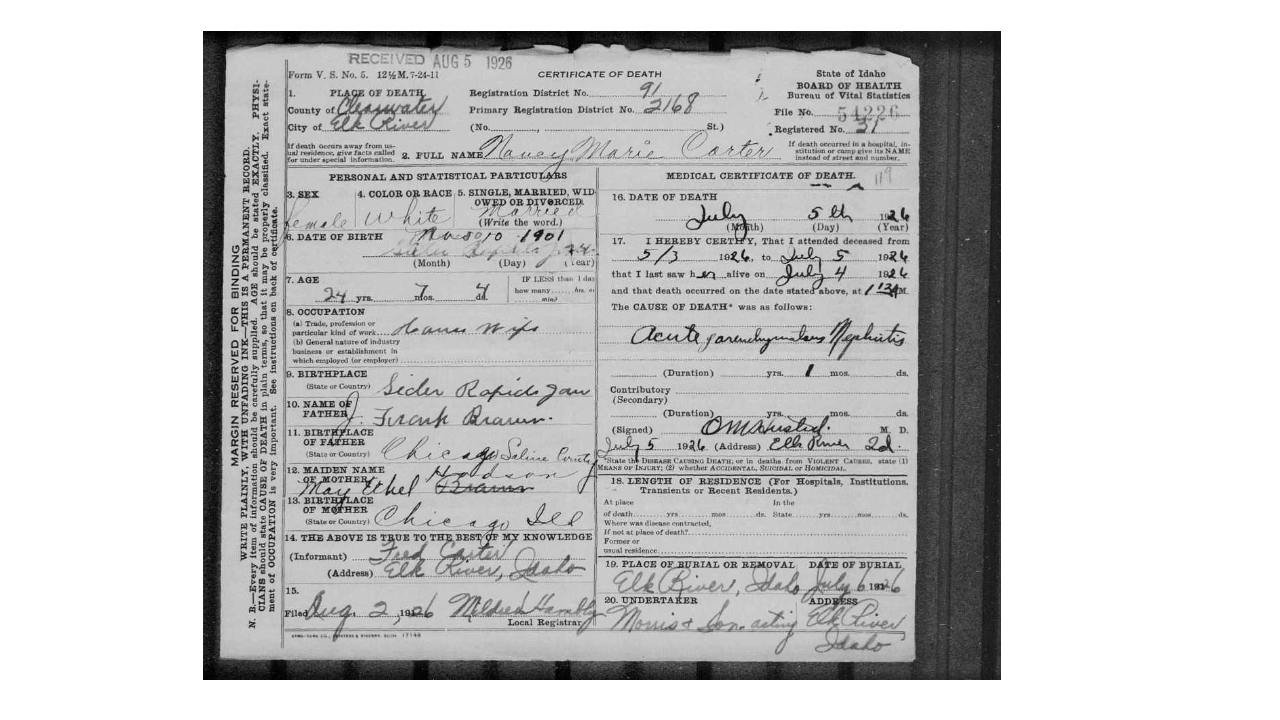 RECEIVED AUG 5 1926
Form V. S. No. 5. 12½M. 7-24-11
CERTIFICATE OF DEATH
State of Idaho
BOARD OF HEALTH
Bureau of Vital Statistics
File No. 54226
Registered No. 31
If death occurred in a hospital, institution or camp give its NAME instead of street and number.
1. PLACE OF DEATH
County of Clearwater
City of Elk River
Registration District No. 91
Primary Registration District No. 2168
(No. , St.)
If death occurs away from usual residence, give facts called for under special information.
2. FULL NAME Nancy Marie Carter
PERSONAL AND STATISTICAL PARTICULARS
3. SEX
female
4. COLOR OR RACE
White
5. SINGLE, MARRIED, WIDOWED OR DIVORCED.
Married
(Write the word.)
6. DATE OF BIRTH
Nov 10 1901
(Month) (Day) (Year)
7. AGE
24 yrs. 7 mos. 4 ds.
IF LESS than 1 day
how many hrs. or
min?
8. OCCUPATION
(a) Trade, profession or
particular kind of work House Wife
(b) General nature of industry
business or establishment in
which employed (or employer)
9. BIRTHPLACE
(State or Country) Sider Rapids Iow
10. NAME OF
FATHER J. Frank Brawn
11. BIRTHPLACE
OF FATHER
(State or Country) Chicago Saline County
12. MAIDEN NAME
OF MOTHER Hodson
May Ethel Brawn
13. BIRTHPLACE
OF MOTHER
(State or Country) Chicago Ill
14. THE ABOVE IS TRUE TO THE BEST OF MY KNOWLEDGE
(Informant) Fred Carter
(Address) Elk River, Idaho
15.
Filed Aug. 2, 1926 Mildred Hambly
Local Registrar
MEDICAL CERTIFICATE OF DEATH.
119
16. DATE OF DEATH
July 5th 1926
(Month) (Day) (Year)
17. I HEREBY CERTIFY, That I attended deceased from
5/3 1926, to July 5 1926
that I last saw her alive on July 4 1926
and that death occurred on the date stated above, at 1 AM.
The CAUSE OF DEATH* was as follows:
Acute parenchymatous Nephritis
(Duration) yrs. 1 mos. ds.
Contributory
(Secondary)
(Duration) yrs. mos. ds.
(Signed) M. D.
July 5 1926 (Address) Elk River Id.
*State the DISEASE CAUSING DEATH; or in deaths from VIOLENT CAUSES, state (1)
MEANS OF INJURY; (2) whether ACCIDENTAL, SUICIDAL or HOMICIDAL.
18. LENGTH OF RESIDENCE (For Hospitals, Institutions, Transients or Recent Residents.)
At place In the
of death yrs. mos. ds. State yrs. mos. ds.
Where was disease contracted,
if not at place of death?
Former or
usual residence
19. PLACE OF BURIAL OR REMOVAL DATE OF BURIAL
Elk River, Idaho July 6 1926
20. UNDERTAKER ADDRESS
Morris & Son acting Elk River
Idaho
MARGIN RESERVED FOR BINDING
WRITE PLAINLY, WITH UNFADING INK—THIS IS A PERMANENT RECORD.
N. B.—Every item of information should be carefully supplied. AGE should be stated EXACTLY. PHYSICIANS should state CAUSE OF DEATH in plain terms, so that it may be properly classified. Exact statement of OCCUPATION is very important. See instructions on back of certificate.